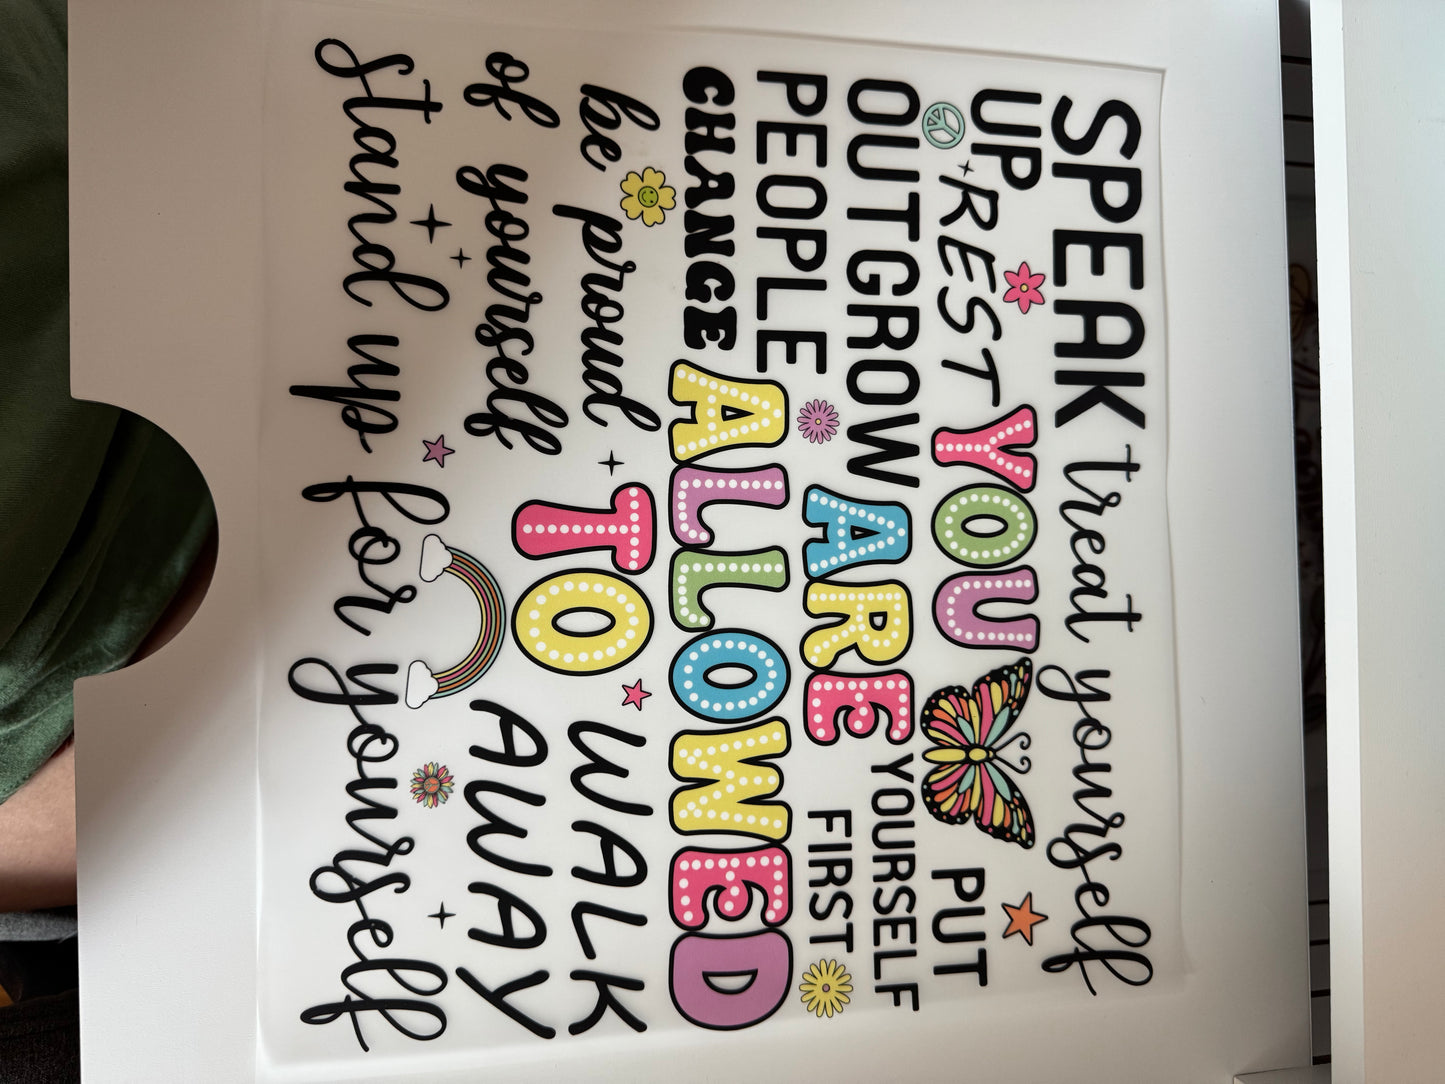 SPEAK treat yourself
UP
REST YOU PUT
OUTGROW ARE YOURSELF
PEOPLE FIRST
CHANGE ALLOWED
be proud TO WALK
of yourself AWAY
stand up for yourself